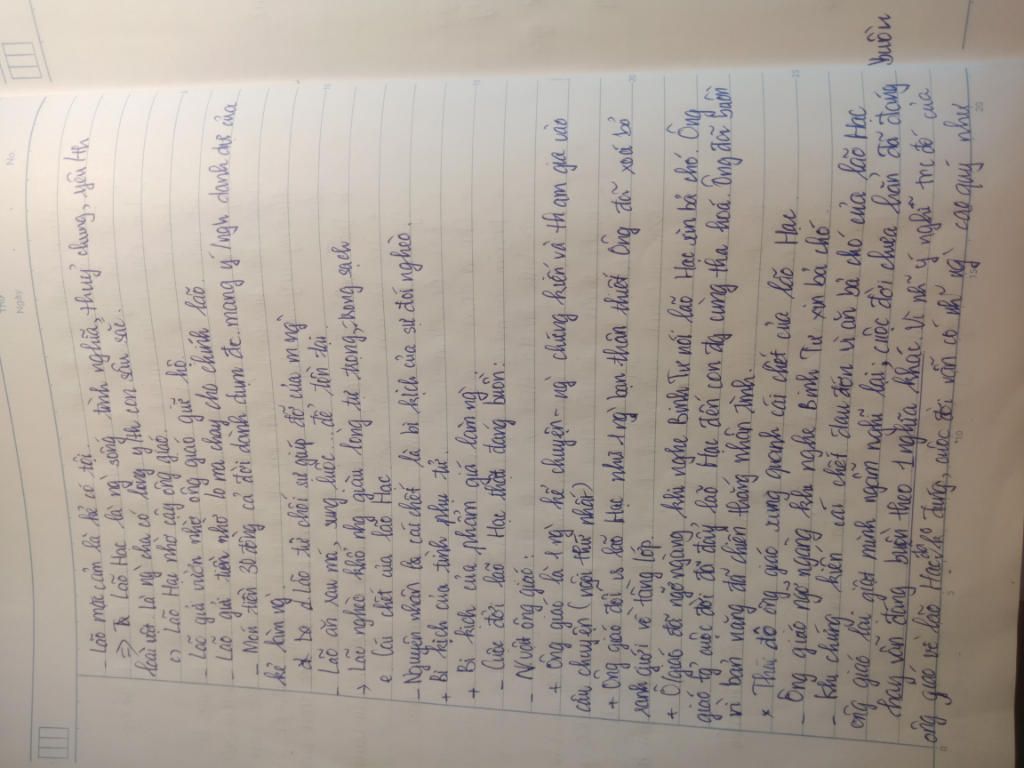 No.
Ngày
- Lão mặc cảm là kẻ có tội.
=> Lão Hạc là ng sống tình nghĩa, thuỷ chung, yêu th
loài vật là ng cha có lòng y th con sâu sắc.
c) Lão Hạc nhờ cậy ông giáo.
- Lão gửi vườn nhờ ông giáo giữ hộ
- Lão gửi tiền nhờ lo ma chay cho chính lão
- Món tiền 30 đồng cả đời dành dụm đc mang ý nghĩ danh dự của
kẻ làm ng
d Lão từ chối sự giúp đỡ của m ng
- Lão ăn rau má, sung luộc... để tồn tại
-> Lão nghèo khổ nhg giàu lòng tự trọng, trong sạch
e Cái chết của lão Hạc
- Nguyên nhân là cái chết là bi kịch của sự đói nghèo.
+ Bi kịch của tình phụ tử
+ Bi kịch của phẩm giá làm ng.
- Cuộc đời lão Hạc thật đáng buồn:
- N vật ông giáo:
+ Ông giáo là 1 ng kể chuyện - ng chứng kiến và tham gia vào
câu chuyện (ngôi thứ nhất)
+ Ông giáo đối vs lão Hạc như 1 ng bạn thân thiết ông đã xoá bỏ
ranh giới về tầng lớp.
+ Ô giáo đã ngỡ ngàng khi nghe Binh Tư nói lão Hạc xin bả chó. Ông
giáo cuộc đời đã đẩy lão Hạc đến con đg cùng tha hoá. Ông đã buồn
vì bản năng đã chiến thắng nhân tính.
* Thái độ ông giáo xung quanh cái chết của lão Hạc
- Ông giáo ngỡ ngàng khi nghe Binh Tư xin bả chó.
- Khi chứng kiến cái chết đau đớn vì ăn bả chó của lão Hạc
ông giáo lại giật mình ngẫm nghĩ lại; cuộc đời chưa hẳn đã đáng buồn
hay vẫn đáng buồn theo 1 nghĩa khác. Vì nhữ ý nghĩ tr đó của
ông giáo về lão Hạc đúng, cuộc đời vẫn có nhữ ng cao quý như
5
10
15
20
5
10
15
20
25